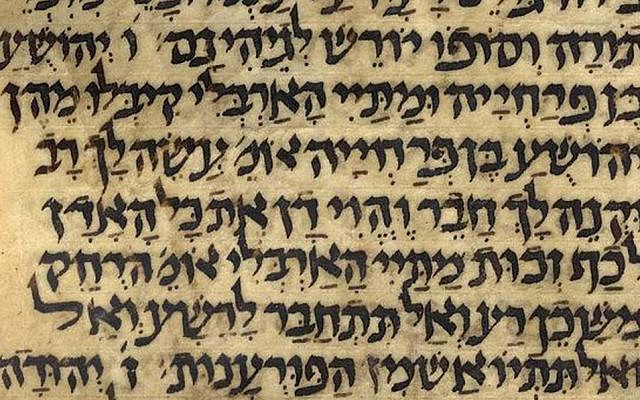 תורה וסופו יורש לגיהינם ו יהושע
בן פרחייה ומתיי הארבלי קיבלו מהן
יהושע בן פרחייה אומ' עשה לך רב
וקנה לך חבר והוי דן את כל האדן
לכף זכות מתיי הארבלי אומ' הרחק
משכן רע ואל תתחבר לרשע ואל
ואל תתייואש מן הפורענות ז יהודה